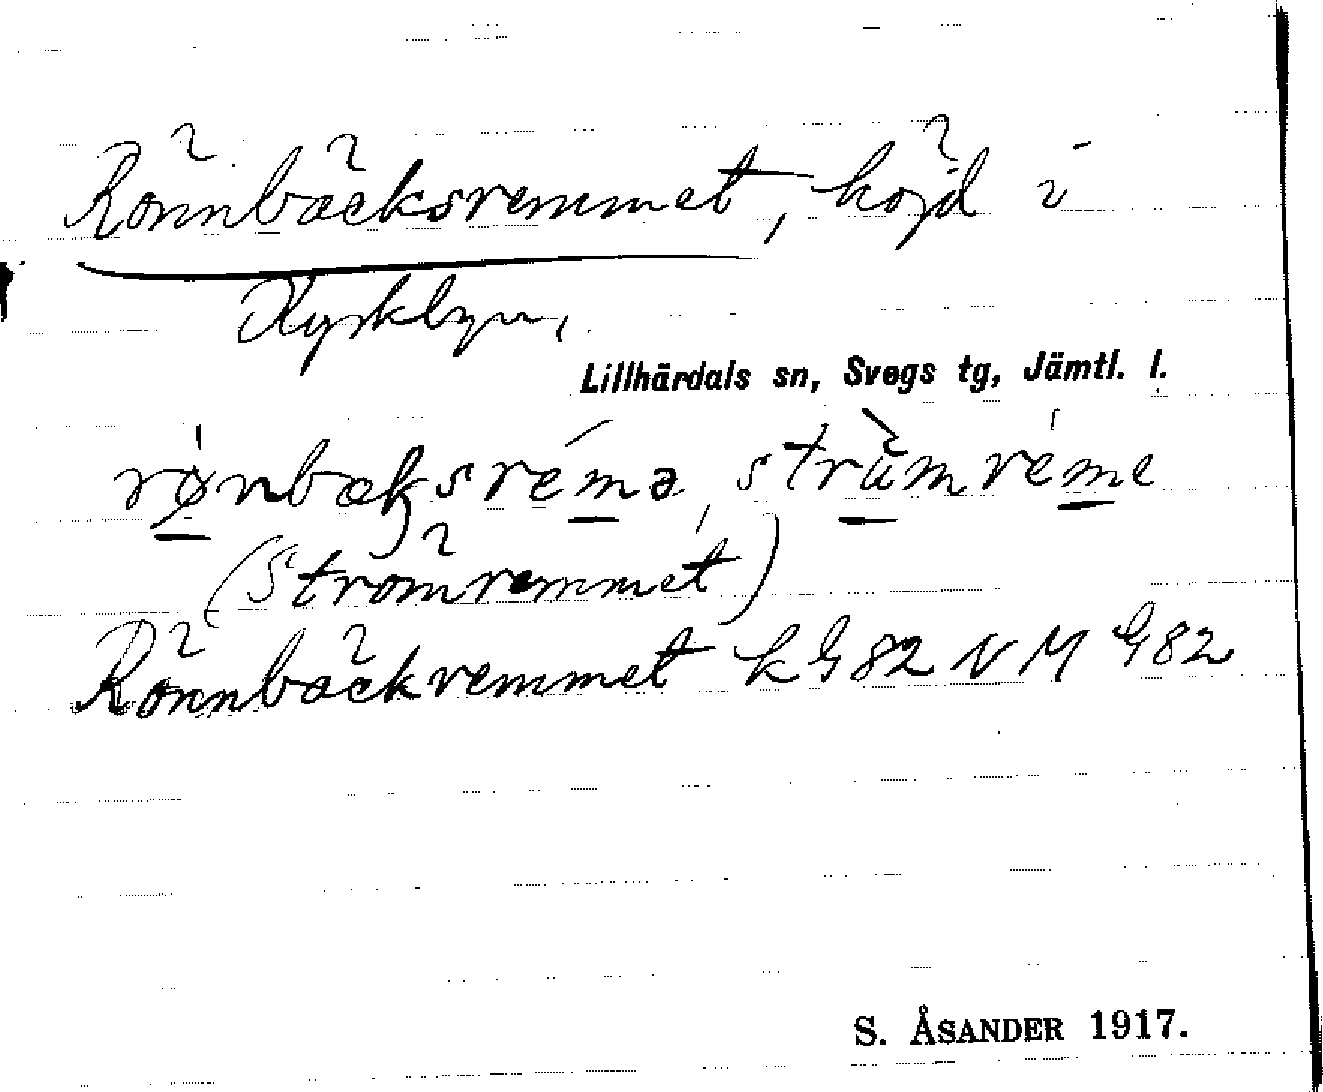 Rönnbäcksremmet, höjd i
Olingsbyn,
Lillhärdals sn, Svegs tg, Jämtl. l.
rønbæksrémə, strùmréme
(Strömremmet)
Rönnbäckremmet k G 82 N M G 82
S. ÅSANDER 1917.